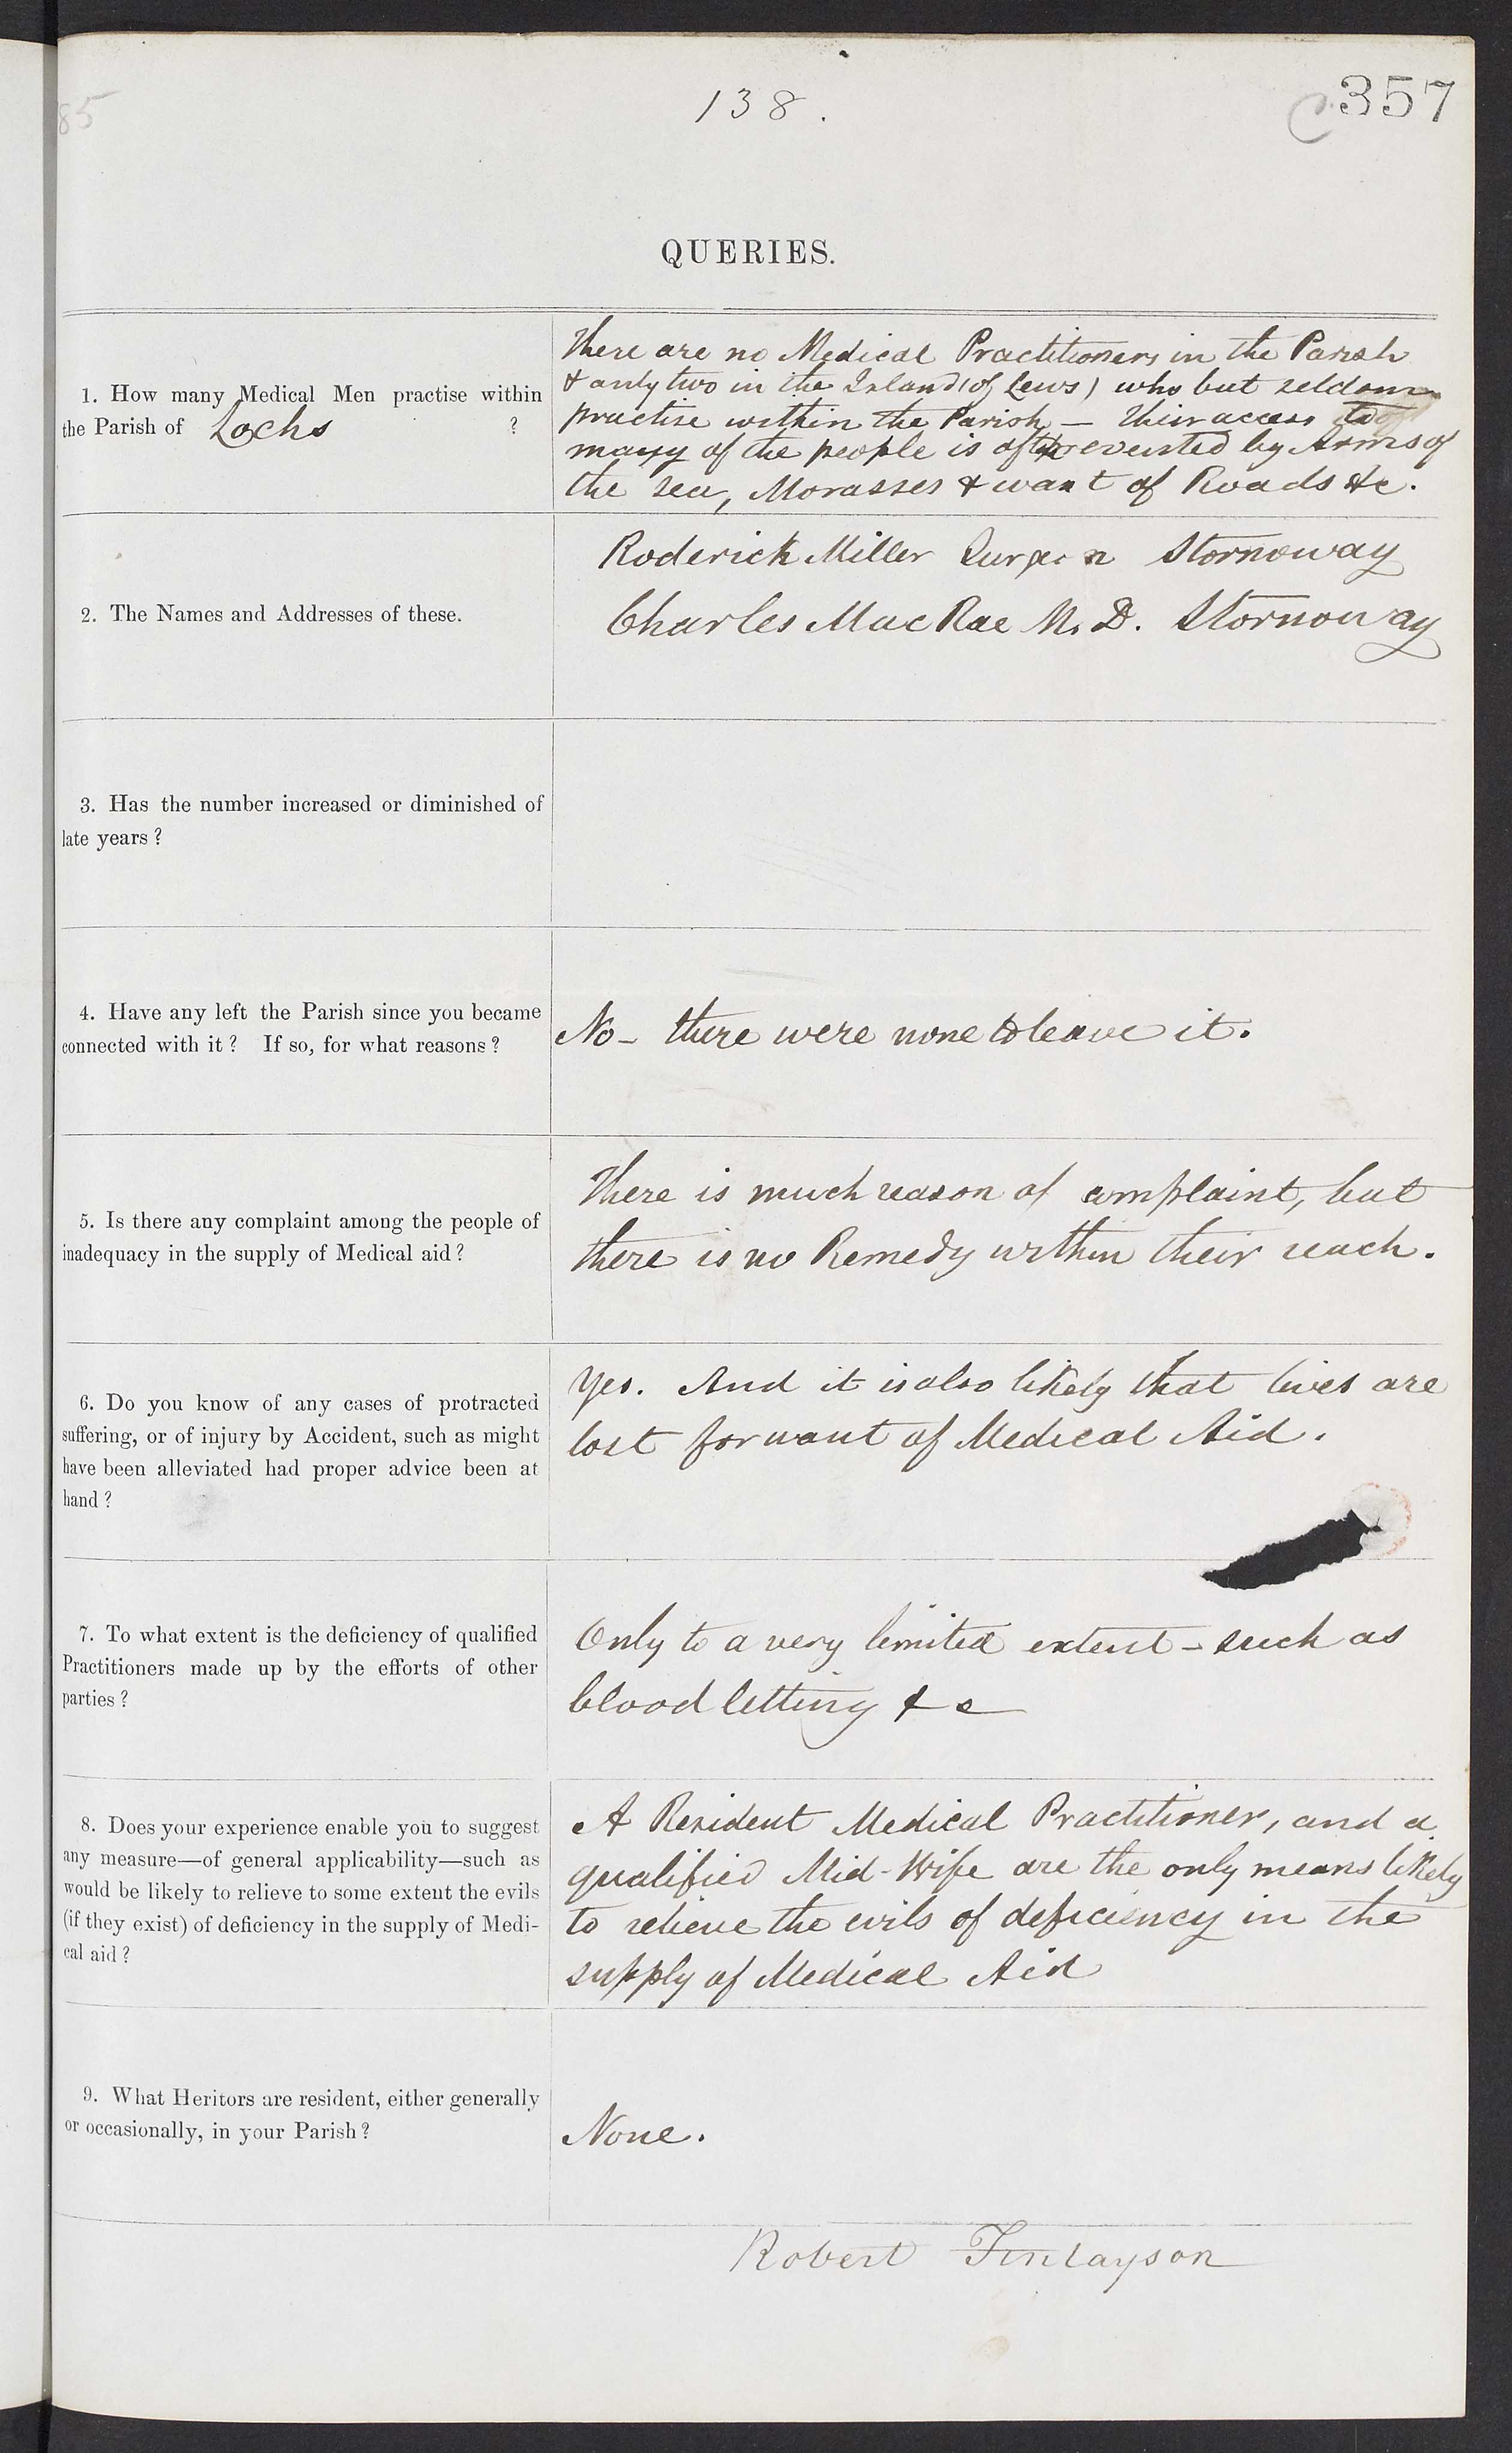 138.
357
85
QUERIES.
1. How many Medical Men practise within
the Parish of Lochs ?
There are no Medical Practitioners in the Parish
& only two in the Island (of Lews) who but seldom
practise within the Parish — their access to
many of the people is oft prevented by Arms of
the sea, Morasses & want of Roads &c.
2. The Names and Addresses of these.
Roderick Miller Surgeon Stornoway
Charles MacRae M. D. Stornoway
3. Has the number increased or diminished of
late years ?
4. Have any left the Parish since you became
connected with it ? If so, for what reasons ?
No - there were none to leave it.
5. Is there any complaint among the people of
inadequacy in the supply of Medical aid ?
There is much reason of complaint, but
there is no Remedy within their reach.
6. Do you know of any cases of protracted
suffering, or of injury by Accident, such as might
have been alleviated had proper advice been at
hand ?
Yes. And it is also likely that lives are
lost for want of Medical Aid.
7. To what extent is the deficiency of qualified
Practitioners made up by the efforts of other
parties ?
Only to a very limited extent - such as
blood letting &c
8. Does your experience enable you to suggest
any measure—of general applicability—such as
would be likely to relieve to some extent the evils
(if they exist) of deficiency in the supply of Medi-
cal aid ?
A Resident Medical Practitioner, and a
qualified Mid-Wife are the only means likely
to relieve the evils of deficiency in the
supply of Medical Aid
9. What Heritors are resident, either generally
or occasionally, in your Parish ?
None.
Robert Finlayson